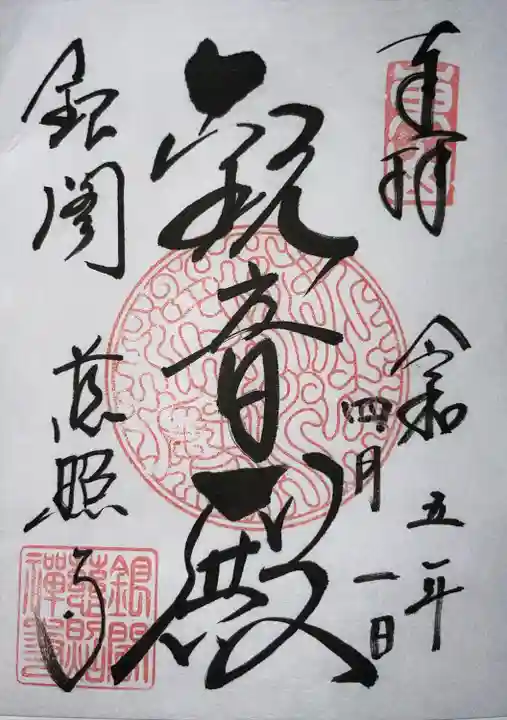 奉拝
令和五年
四月一日
観音殿
銀閣 慈照寺
銀閣
慈照
禅寺